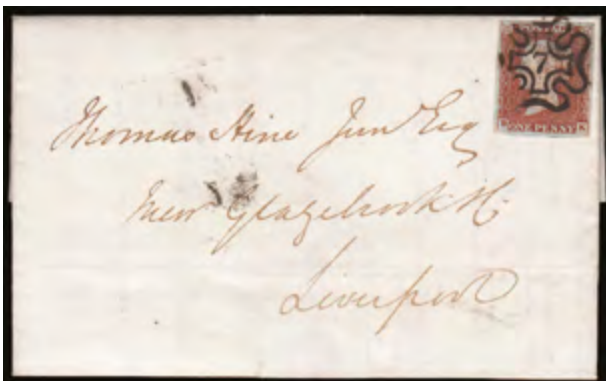 POSTAGE
7
ONE PENNY K
Thomas Hine Junr Esq
New Glazebrook St
Liverpool